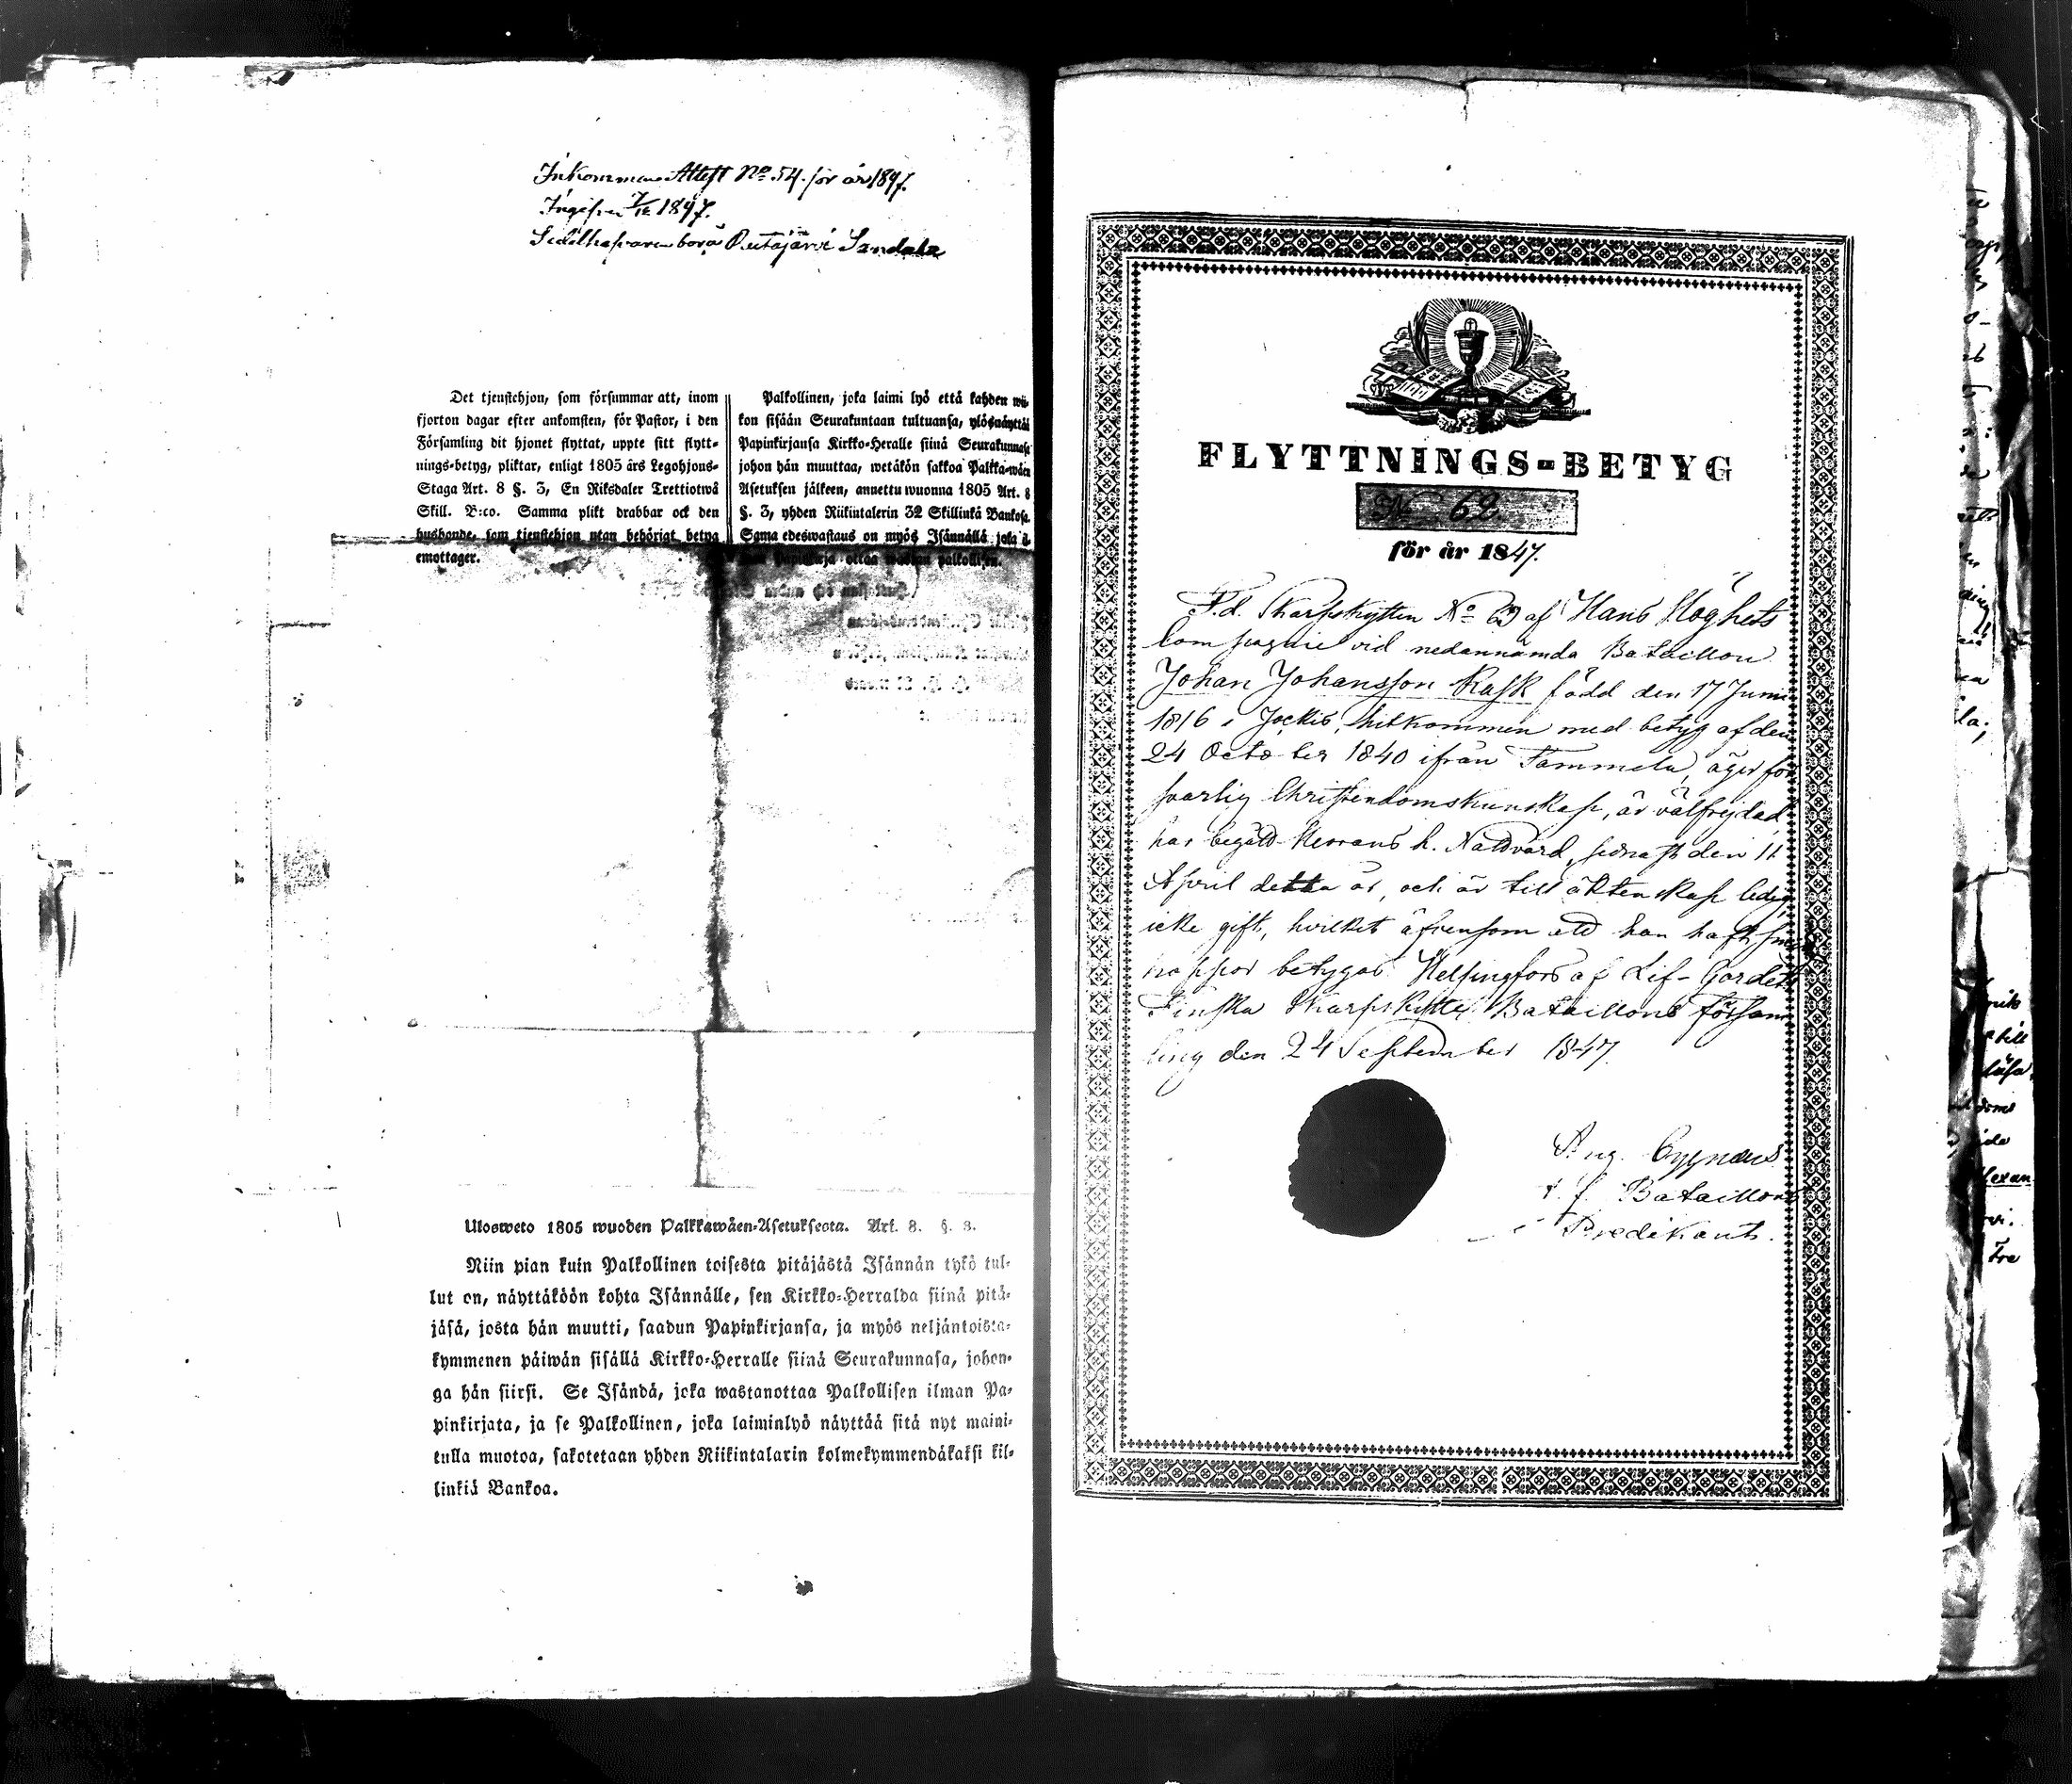 Inkommen Attest No. 54. för år 1847.
1847.
Sedelhafvaren bor å Rutajärvi Sandala
Det tjenstehjon, som försummar att, inom
fjorton dagar efter ankomsten, för Pastor, i den
Församling dit hjonet flyttat, uppte sitt flytt-
nings-betyg, pliktar, enligt 1805 års Legohjons-
Staga Art. 8 §. 3, En Riksdaler Trettiotwå
Skill. B:co. Samma plikt drabbar ock den
husbonde, som tjenstehjon utan behörigt betyg
emottager.
Palkollinen, joka laimi lyö että kahden wii-
kon sisään Seurakuntaan tultuansa, ylösnäyttää
Papinkirjansa Kirkko-Heralle siinä Seurakunnasa
johon hän muuttaa, wetäkön sakkoa Palkka-wäen
Asetuksen jälkeen, annettu wuonna 1805 Art. 8
§. 3, yhden Riikintalerin 32 Skillinkä Bankosa.
Sama edeswastaus on myös Isännällä joka il-
man Papinkirja ottaa wastan palkollisen.
Ulosweto 1805 wuoden Palkkawäen-Asetuksesta. Art. 8. §. 3.
Niin pian kuin Palkollinen toisesta pitäjästä Isännän tykö tul-
lut on, näyttäköön kohta Isännälle, sen Kirkko-Herralda siinä pitä-
jäsä, josta hän muutti, saadun Papinkirjansa, ja myös neljäntoista-
kymmenen päiwän sisällä Kirkko-Herralle siinä Seurakunnasa, johon-
ga hän siirsi. Se Isändä, joka wastanottaa Palkollisen ilman Pa-
pinkirjata, ja se Palkollinen, joka laiminlyö näyttää sitä nyt maini-
tulla muotoa, sakotetaan yhden Riikintalarin kolmekymmendäkaksi kil-
linkiä Bankoa.
FLYTTNINGS-BETYG
N 62.
för år 1847.
F.d. Skarpskytten No 69 af Hans Höghets
Compagnie vid nedannämda Bataillon
Johan Johansson Rask född den 17 Junii
1816 i Jockis, hitkommen med betyg af den
24 October 1840 ifrån Tammela, äger för
svarlig Christendomskunskap, är välfrejdad,
har begått Herrans h. Nattvard, sednast den 11
April detta år, och är till äktenskap ledig,
icke gift, hvilket äfvensom att han haft
koppor betygas. Helsingfors af Lif-Gardets
Finska Skarpskytte Bataillons Församling
den 24 September 1847.
Aug. Cygnæus
t. f. Bataillons
Predikant.